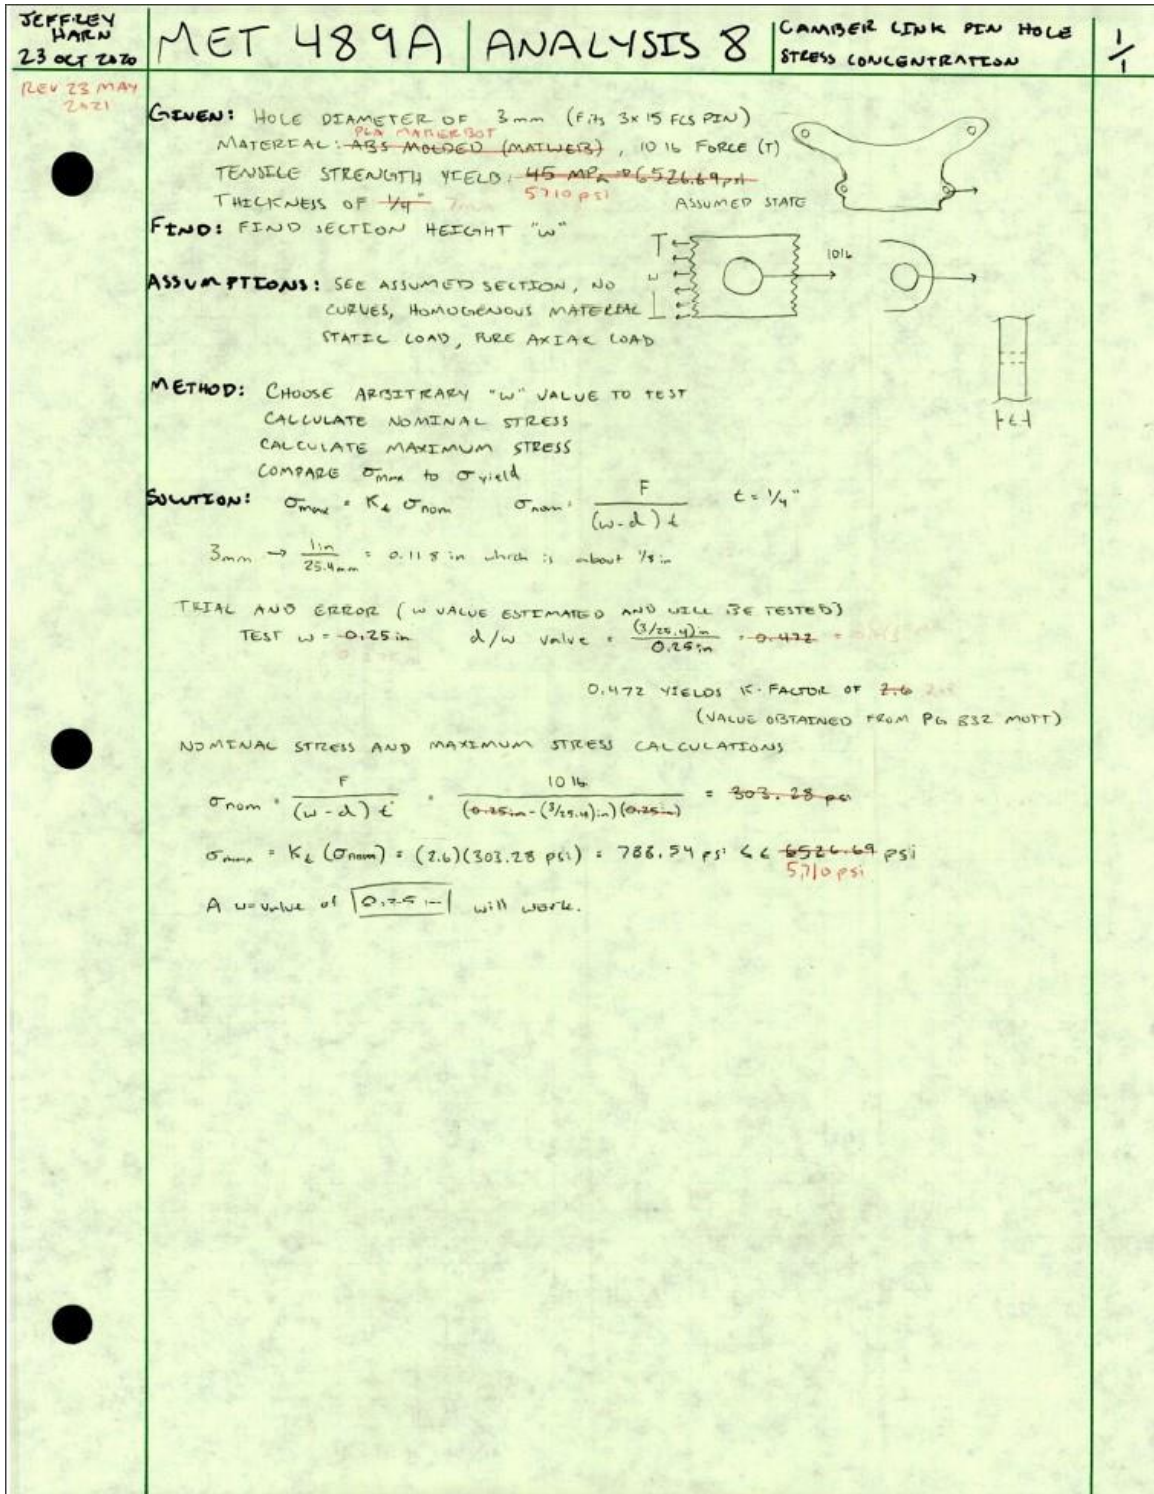 JEFFREY HARN
23 OCT 2020
MET 489A
ANALYSIS 8
CAMBER LINK PIN HOLE
STRESS CONCENTRATION
1/1
REV 23 MAY
2021
GIVEN: HOLE DIAMETER OF 3mm (Fits 3x15 FCS PIN)
PLA MAKERBOT
MATERIAL: ABS MOLDED (MATWEB), 10 lb FORCE (T)
TENSILE STRENGTH YIELD: 45 MPa → 6526.69 psi
5710 psi
THICKNESS OF 1/4"
ASSUMED STATE
FIND: FIND SECTION HEIGHT "w"
w
10 lb
ASSUMPTIONS: SEE ASSUMED SECTION, NO
CURVES, HOMOGENOUS MATERIAL
STATIC LOAD, PURE AXIAL LOAD
t
METHOD: CHOOSE ARBITRARY "w" VALUE TO TEST
CALCULATE NOMINAL STRESS
CALCULATE MAXIMUM STRESS
COMPARE σmax to σyield
SOLUTION: σmax = Kt σnom σnom = F / (w-d) t t = 1/4"
3mm → 1in / 25.4mm = 0.118 in which is about 1/8 in
TRIAL AND ERROR (w VALUE ESTIMATED AND WILL BE TESTED)
TEST w = 0.25 in d/w value = (3/25.4)in / 0.25in = 0.472
0.472 YIELDS K-FACTOR OF 2.6
(VALUE OBTAINED FROM PG 832 MOTT)
NOMINAL STRESS AND MAXIMUM STRESS CALCULATIONS
σnom = F / (w-d) t = 10 lb / (0.25in - (3/25.4)in)(0.25in) = 303.28 psi
σmax = Kt (σnom) = (2.6)(303.28 psi) = 788.54 psi << 6526.69 psi
5,710 psi
A w-value of 0.25 in will work.